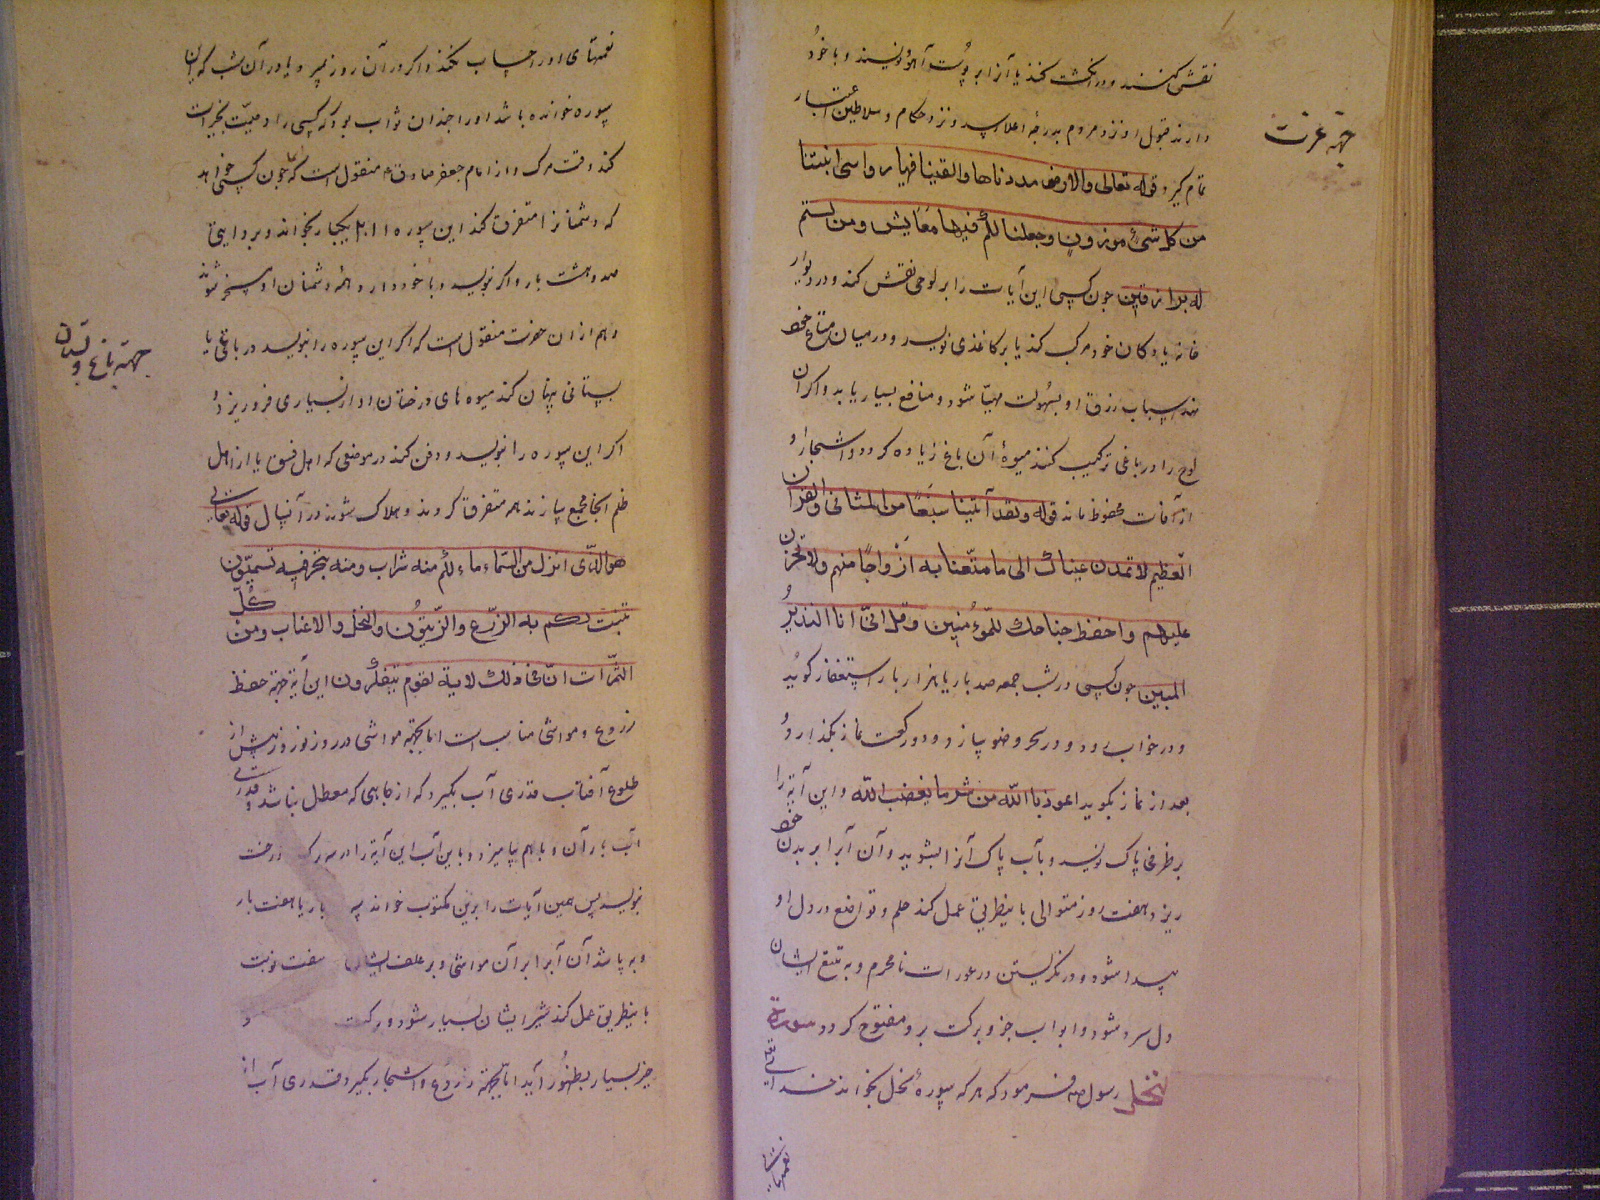 نقش کنند و در انگشت کند یا آنرا بر پوست آهو نویسند و با خود
دارند قبول او نزد مردم بدرجهٔ اعلا رسد و نزد حکام و سلاطین اعتبار
جهة عزت
تمام گیرد قوله تعالی والارض مددناها والقینا فیها رواسی وانبتنا
من کل شیء موزون وجعلنا لکم فیها معایش ومن لستم
له برازقین چون کسی این آیات را بر لوحی نقش کند و در دیوار
خانه یا دکان خود مرکب کند یا بر کاغذی نویسد و در میان متاع خود
نهد اسباب رزق او بسهولت مهیا شود و منافع بسیار یابد و اگر آن
لوح را در باغی ترکیب کنند میوهٔ آن باغ زیاده گردد و اشجار او
از آفات محفوظ ماند قوله ولقد آتینا سبعا من المثانی والقرآن
العظیم لا تمدن عیناک الی ما متعنا به ازواجا منهم ولا تحزن
علیهم واخفض جناحک للمؤمنین وقل انی انا النذیر
المبین چون کسی در شب جمعه صد بار یا هزار بار استغفار گوید
و در خواب رود و در سحر وضو سازد و دو رکعت نماز بگذارد و
بعد از نماز بگوید اعوذ باالله من شر ما یغضب الله و این آیة را
بر ظرفی پاک نویسد و بآب پاک آنرا بشوید و آن آبرا بر بدن خود
ریزد هفت روز متوالی باینطریق عمل کند حلم و تواضع در دل او
پیدا شود و در نگریستن در عورات نامحرم و به تتبع ایشان
دل سرد شود و ابواب خیر و برکت برو مفتوح گردد سورة
النحل رسول صلعم فرمود که هر که سورهٔ نحل بخواند خدایتعالی
نعمتهای
نعمتهای او را حساب نکند و اگر در آن روز میرد یا در آن شب که این
سوره خوانده باشد او را چندان ثواب بود که کسی را وصیت بخیرات
کند وقت مرگ و از امام جعفر صادق ع منقول است که چون کسی خواهد
که دشمنانرا متفرق کند این سوره ۱۱ بار یکجا بخواند و بروایتی
صد و هشت بار و اگر نویسد و با خود دارد همه دشمنان او مسخر شوند
و هم از ان حضرت منقول است که اگر این سوره را بنویسد در باغی یا
جهة باغ و بستان
بستانی پنهان کند میوه های درختان او از بسیاری فرو ریزد و
اگر این سوره را بنویسد و دفن کند در موضعی که اهل فسق یا از اهل
ظلم آنجا مجمع سازند همه متفرق گردند و هلاک شوند در آنسال قوله تعالی
هو الذی انزل من السماء ماء لکم منه شراب ومنه شجر فیه تسیمون
ینبت لکم به الزرع والزیتون والنخل والاعناب ومن کل
الثمرات ان فی ذلک لایة لقوم یتفکرون این آیة جهة حفظ
زروع و مواشی مناسب است اما بجهة مواشی در روز نوروز پیش از
طلوع آفتاب قدری آب بگیرد که از چاهی که معطل نباشد و قدری
آب باران و باهم بیامیزد و باین آب این آیة را در درخت
نویسد پس همین آیات را برین مکتوب خواند بار یا هفت بار
و به پاشد آن آبرا بر آن مواشی و بر علف ایشان هفت نوبت
باینطریق عمل کند شیر ایشان بسیار شود و برکت و
خیر بسیار بظهور آید اما بجهة زروع و اشجار بگیرد قدری آب از